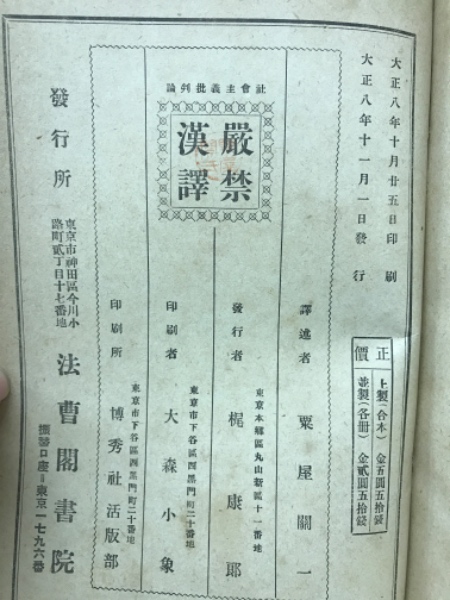 大正八年十月廿五日印刷
大正八年十一月一日發行
正價
上製(合本) 金五圓五拾錢
並製(各冊) 金貳圓五拾錢
社會主義批判論
嚴禁
漢譯
譯述者 粟屋關一
東京本鄕區丸山新町十一番地
發行者 梶康郎
東京市下谷區西黑門町二十番地
印刷者 大森小象
東京市下谷區西黑門町二十番地
印刷所 博秀社活版部
發行所
東京市神田區今川小
路町貳丁目十七番地
法曹閣書院
振替口座東京一七九六番